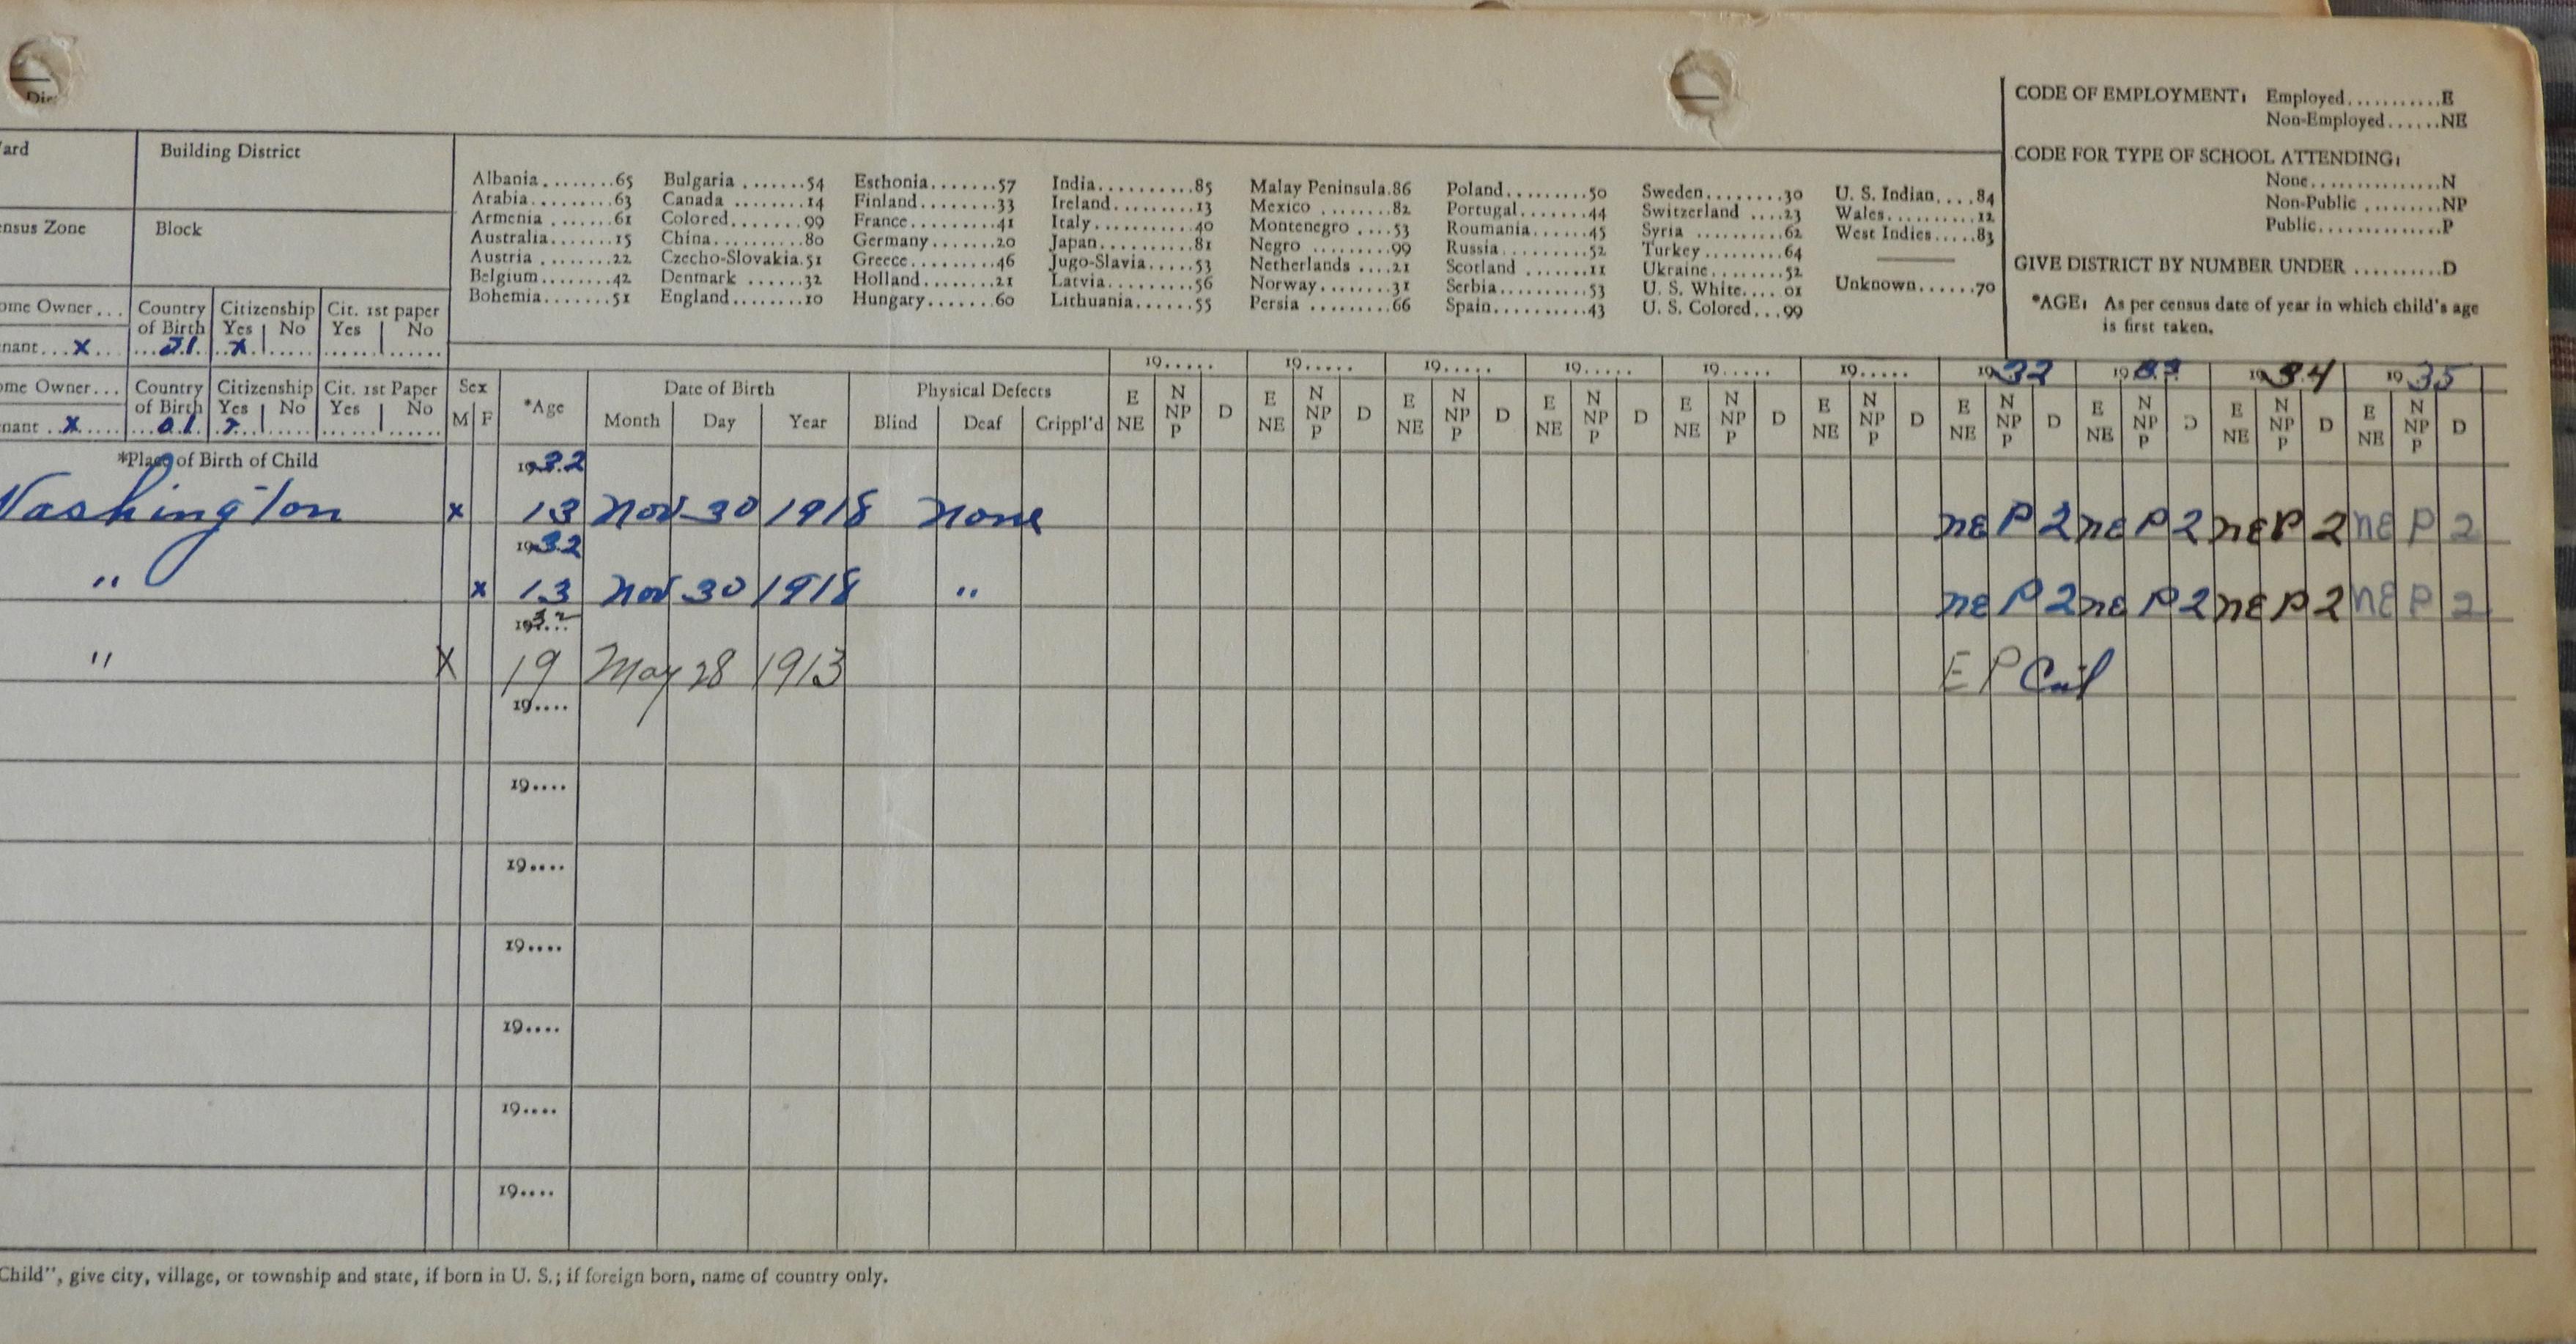 Dis
ard
Building District
nsus Zone
Block
ome Owner... Country of Birth Citizenship Yes | No Cit. 1st paper Yes | No
nant...x... x
ome Owner... Country of Birth Citizenship Yes | No Cit. 1st Paper Yes | No
nant..x..... 01
Albania........65 Bulgaria.......54 Esthonia.......57 India..........85 Malay Peninsula.86 Poland.........50 Sweden........30 U. S. Indian....84
Arabia.........63 Canada ........14 Finland........33 Ireland.........13 Mexico ........82 Portugal.......44 Switzerland ....23 Wales..........12
Armenia........61 Colored........99 France.........41 Italy..........40 Montenegro ....53 Roumania......45 Syria ..........62 West Indies.....83
Australia.......15 China..........80 Germany.......20 Japan..........81 Negro .........99 Russia.........52 Turkey.........64
Austria ........22 Czecho-Slovakia.51 Greece.........46 Jugo-Slavia.....53 Netherlands ....21 Scotland .......11 Ukraine........52
Belgium........42 Denmark .......32 Holland........21 Latvia..........56 Norway........31 Serbia..........53 U. S. White....01 Unknown......70
Bohemia.......51 England........10 Hungary.......60 Lithuania......55 Persia .........66 Spain..........43 U. S. Colored...99
CODE OF EMPLOYMENT: Employed...........E
Non-Employed......NE
CODE FOR TYPE OF SCHOOL ATTENDING:
None...............N
Non-Public .........NP
Public..............P
GIVE DISTRICT BY NUMBER UNDER ..........D
*AGE: As per census date of year in which child's age
is first taken.
19..... 19..... 19..... 19..... 19..... 19..... 1932 1933 1934 1935
Sex M F *Age Date of Birth Month Day Year Physical Defects Blind Deaf Crippl'd E NE N NP P D E NE N NP P D E NE N NP P D E NE N NP P D E NE N NP P D E NE N NP P D E NE N NP P D E NE N NP P D E NE N NP P D E NE N NP P D
*Place of Birth of Child 1932
Washington x 13 Nov 30 1918 None NE P 2 NE P 2 NE P 2 NE P 2
1932
" x 13 Nov 30 1918 " NE P 2 NE P 2 NE P 2 NE P 2
1932
" X 19 May 28 1913 E P
19....
19....
19....
19....
19....
19....
19....
Child", give city, village, or township and state, if born in U. S.; if foreign born, name of country only.